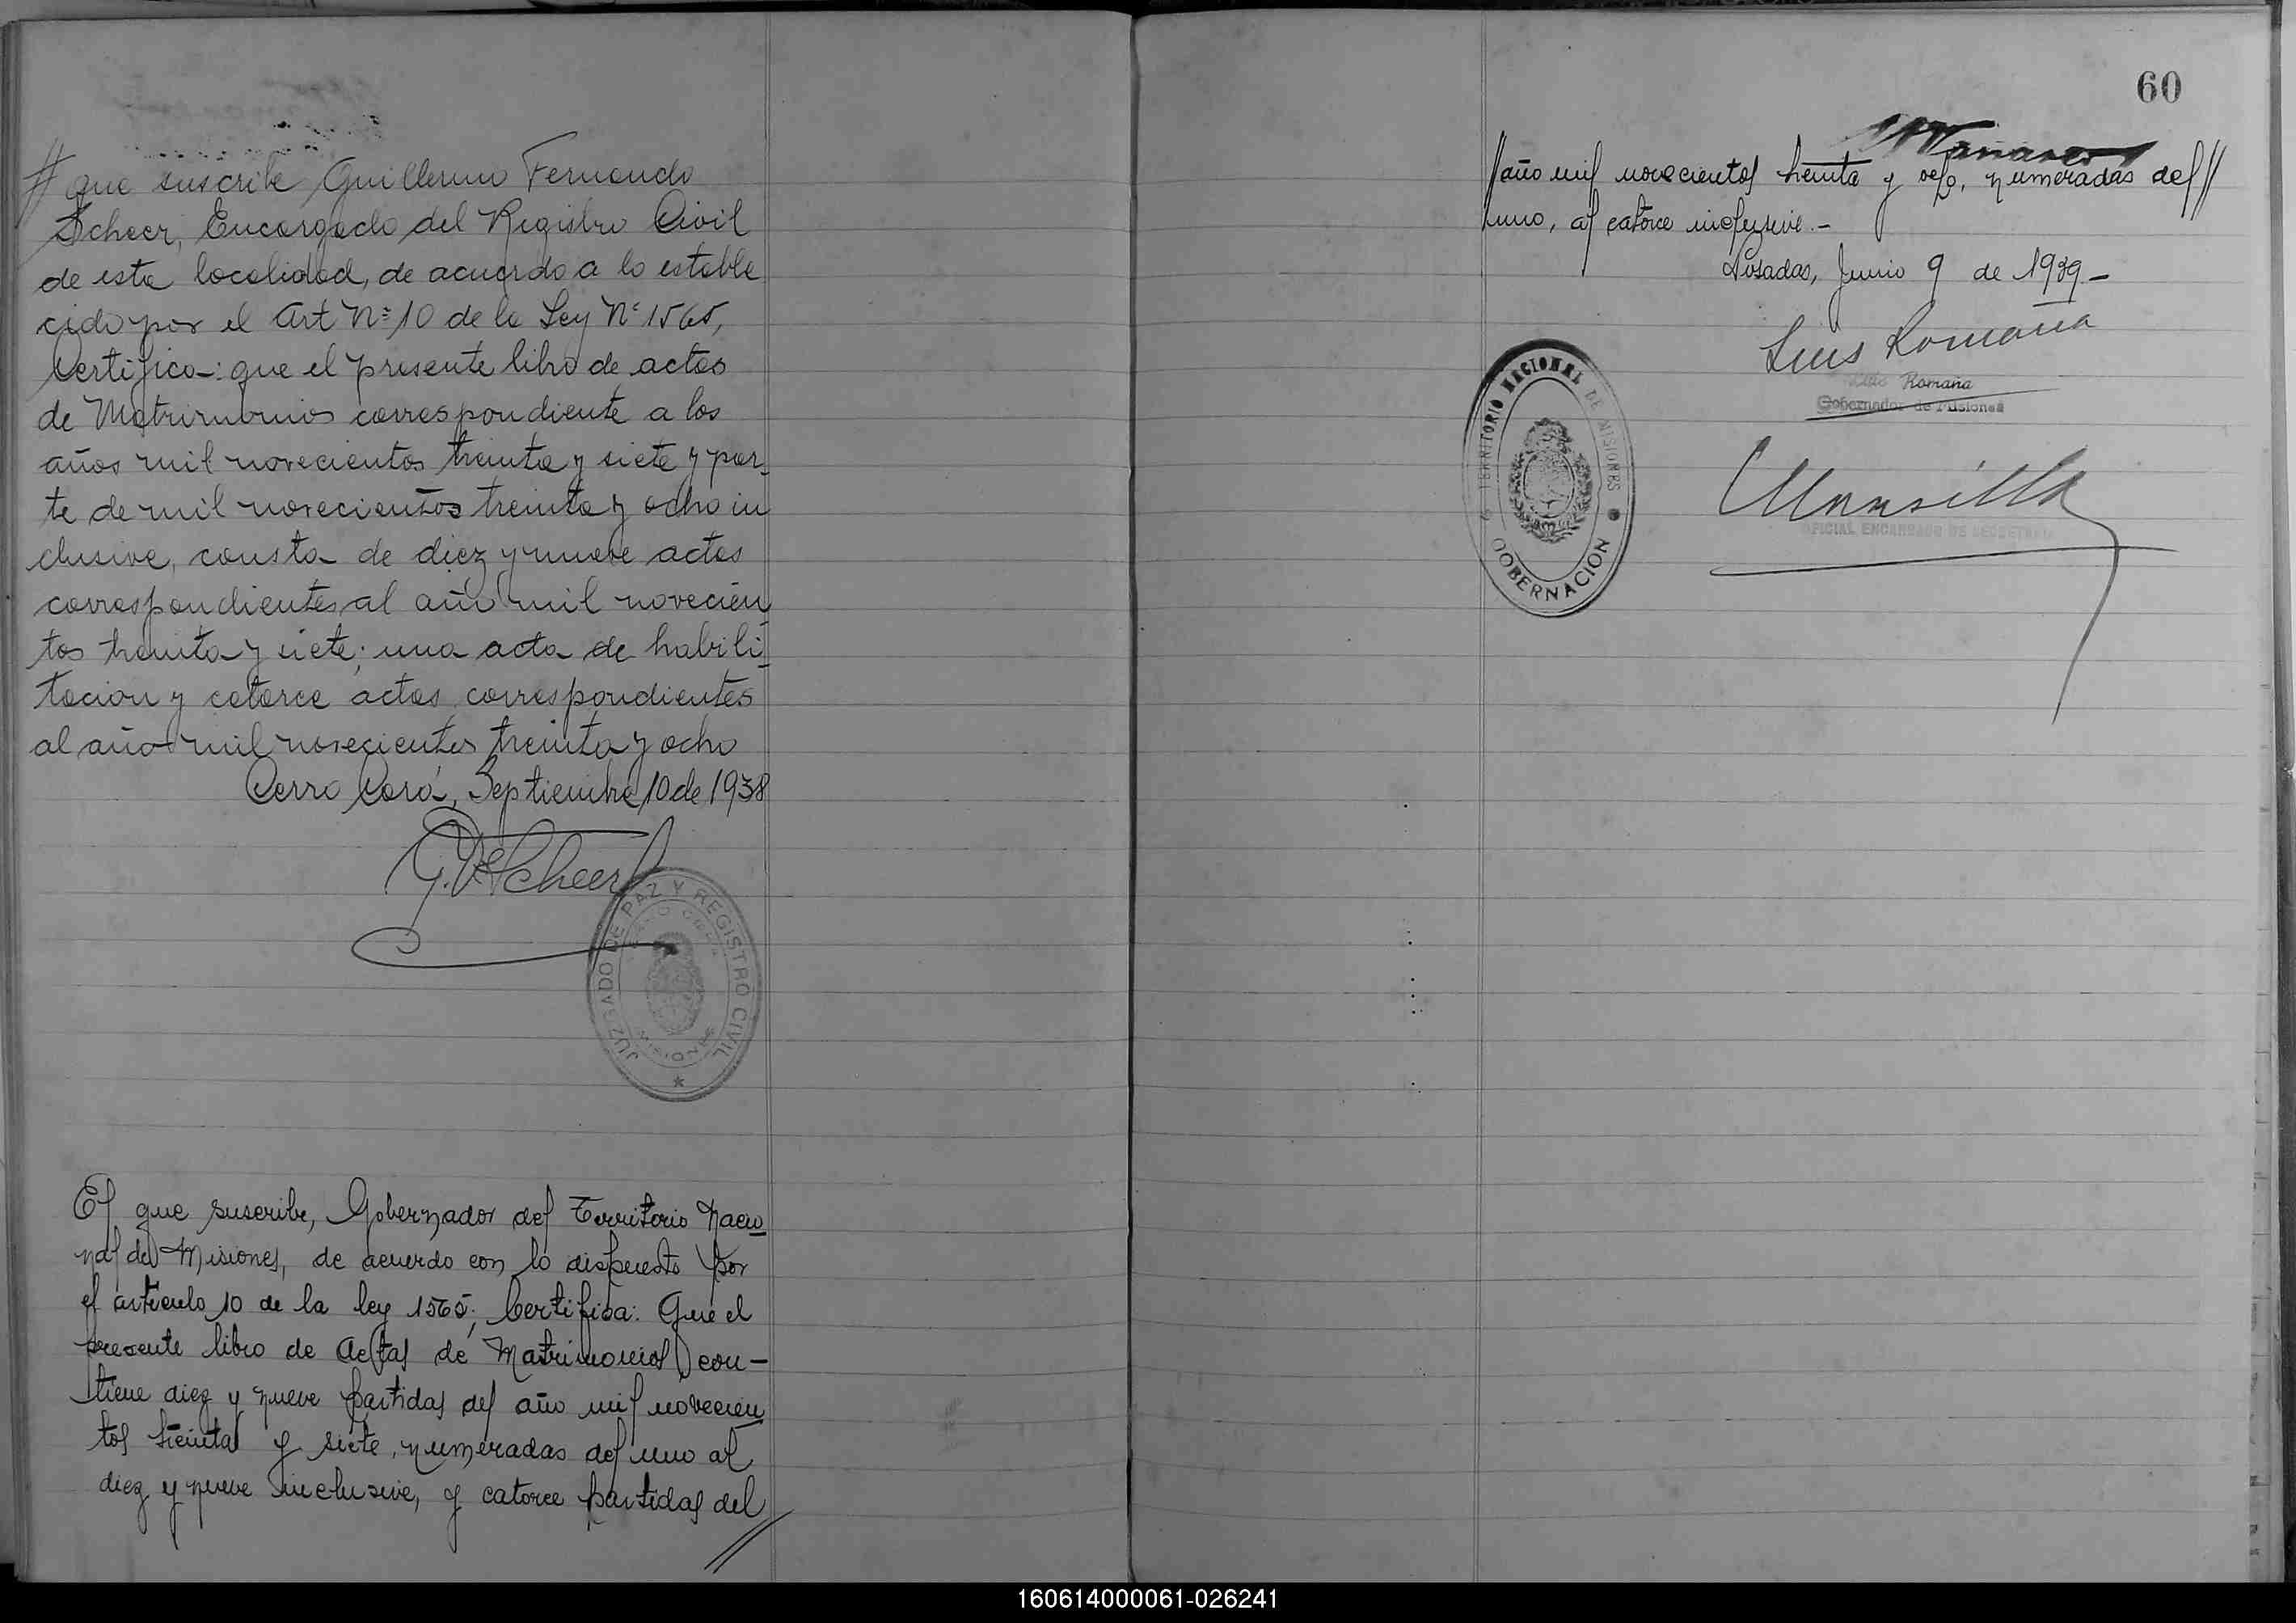 // que suscribe Guillermo Fernando
Scheer, Encargado del Registro Civil
de esta localidad, de acuerdo a lo estable
cido por el Art Nº 10 de la Ley Nº 1565,
Certifico-: que el presente libro de actas
de Matrimonios correspondiente a los
años mil novecientos treinta y siete y par-
te de mil novecientos treinta y ocho in
clusive, consta de diez y nueve actas
correspondientes al año mil novecien
tos treinta y siete; una acta de habili-
tacion y catorce actas correspondientes
al año mil novecientos treinta y ocho
Cerro Corá, Septiembre 10 de 1938
G. F. Scheer
JUZGADO DE PAZ Y REGISTRO CIVIL
MISIONES
El que suscribe, Gobernador del Territorio Nacio
nal de Misiones, de acuerdo con lo dispuesto por
el artículo 10 de la ley 1565, Certifica: Que el
presente libro de Actas de Matrimonios con-
tiene diez y nueve partidas del año mil novecien
tos treinta y siete, numeradas del uno al
diez y nueve inclusive, y catorce partidas del
//
60
//año mil novecientos treinta y ocho, numeradas del//
uno, al catorce inclusive.-
Posadas, Junio 9 de 1939-
Luis Romaña
Luis Romaña
Gobernador de Misiones
TERRITORIO NACIONAL DE MISIONES
GOBERNACION
Mansilla
OFICIAL ENCARGADO DE SECRETARIA
160614000061-026241